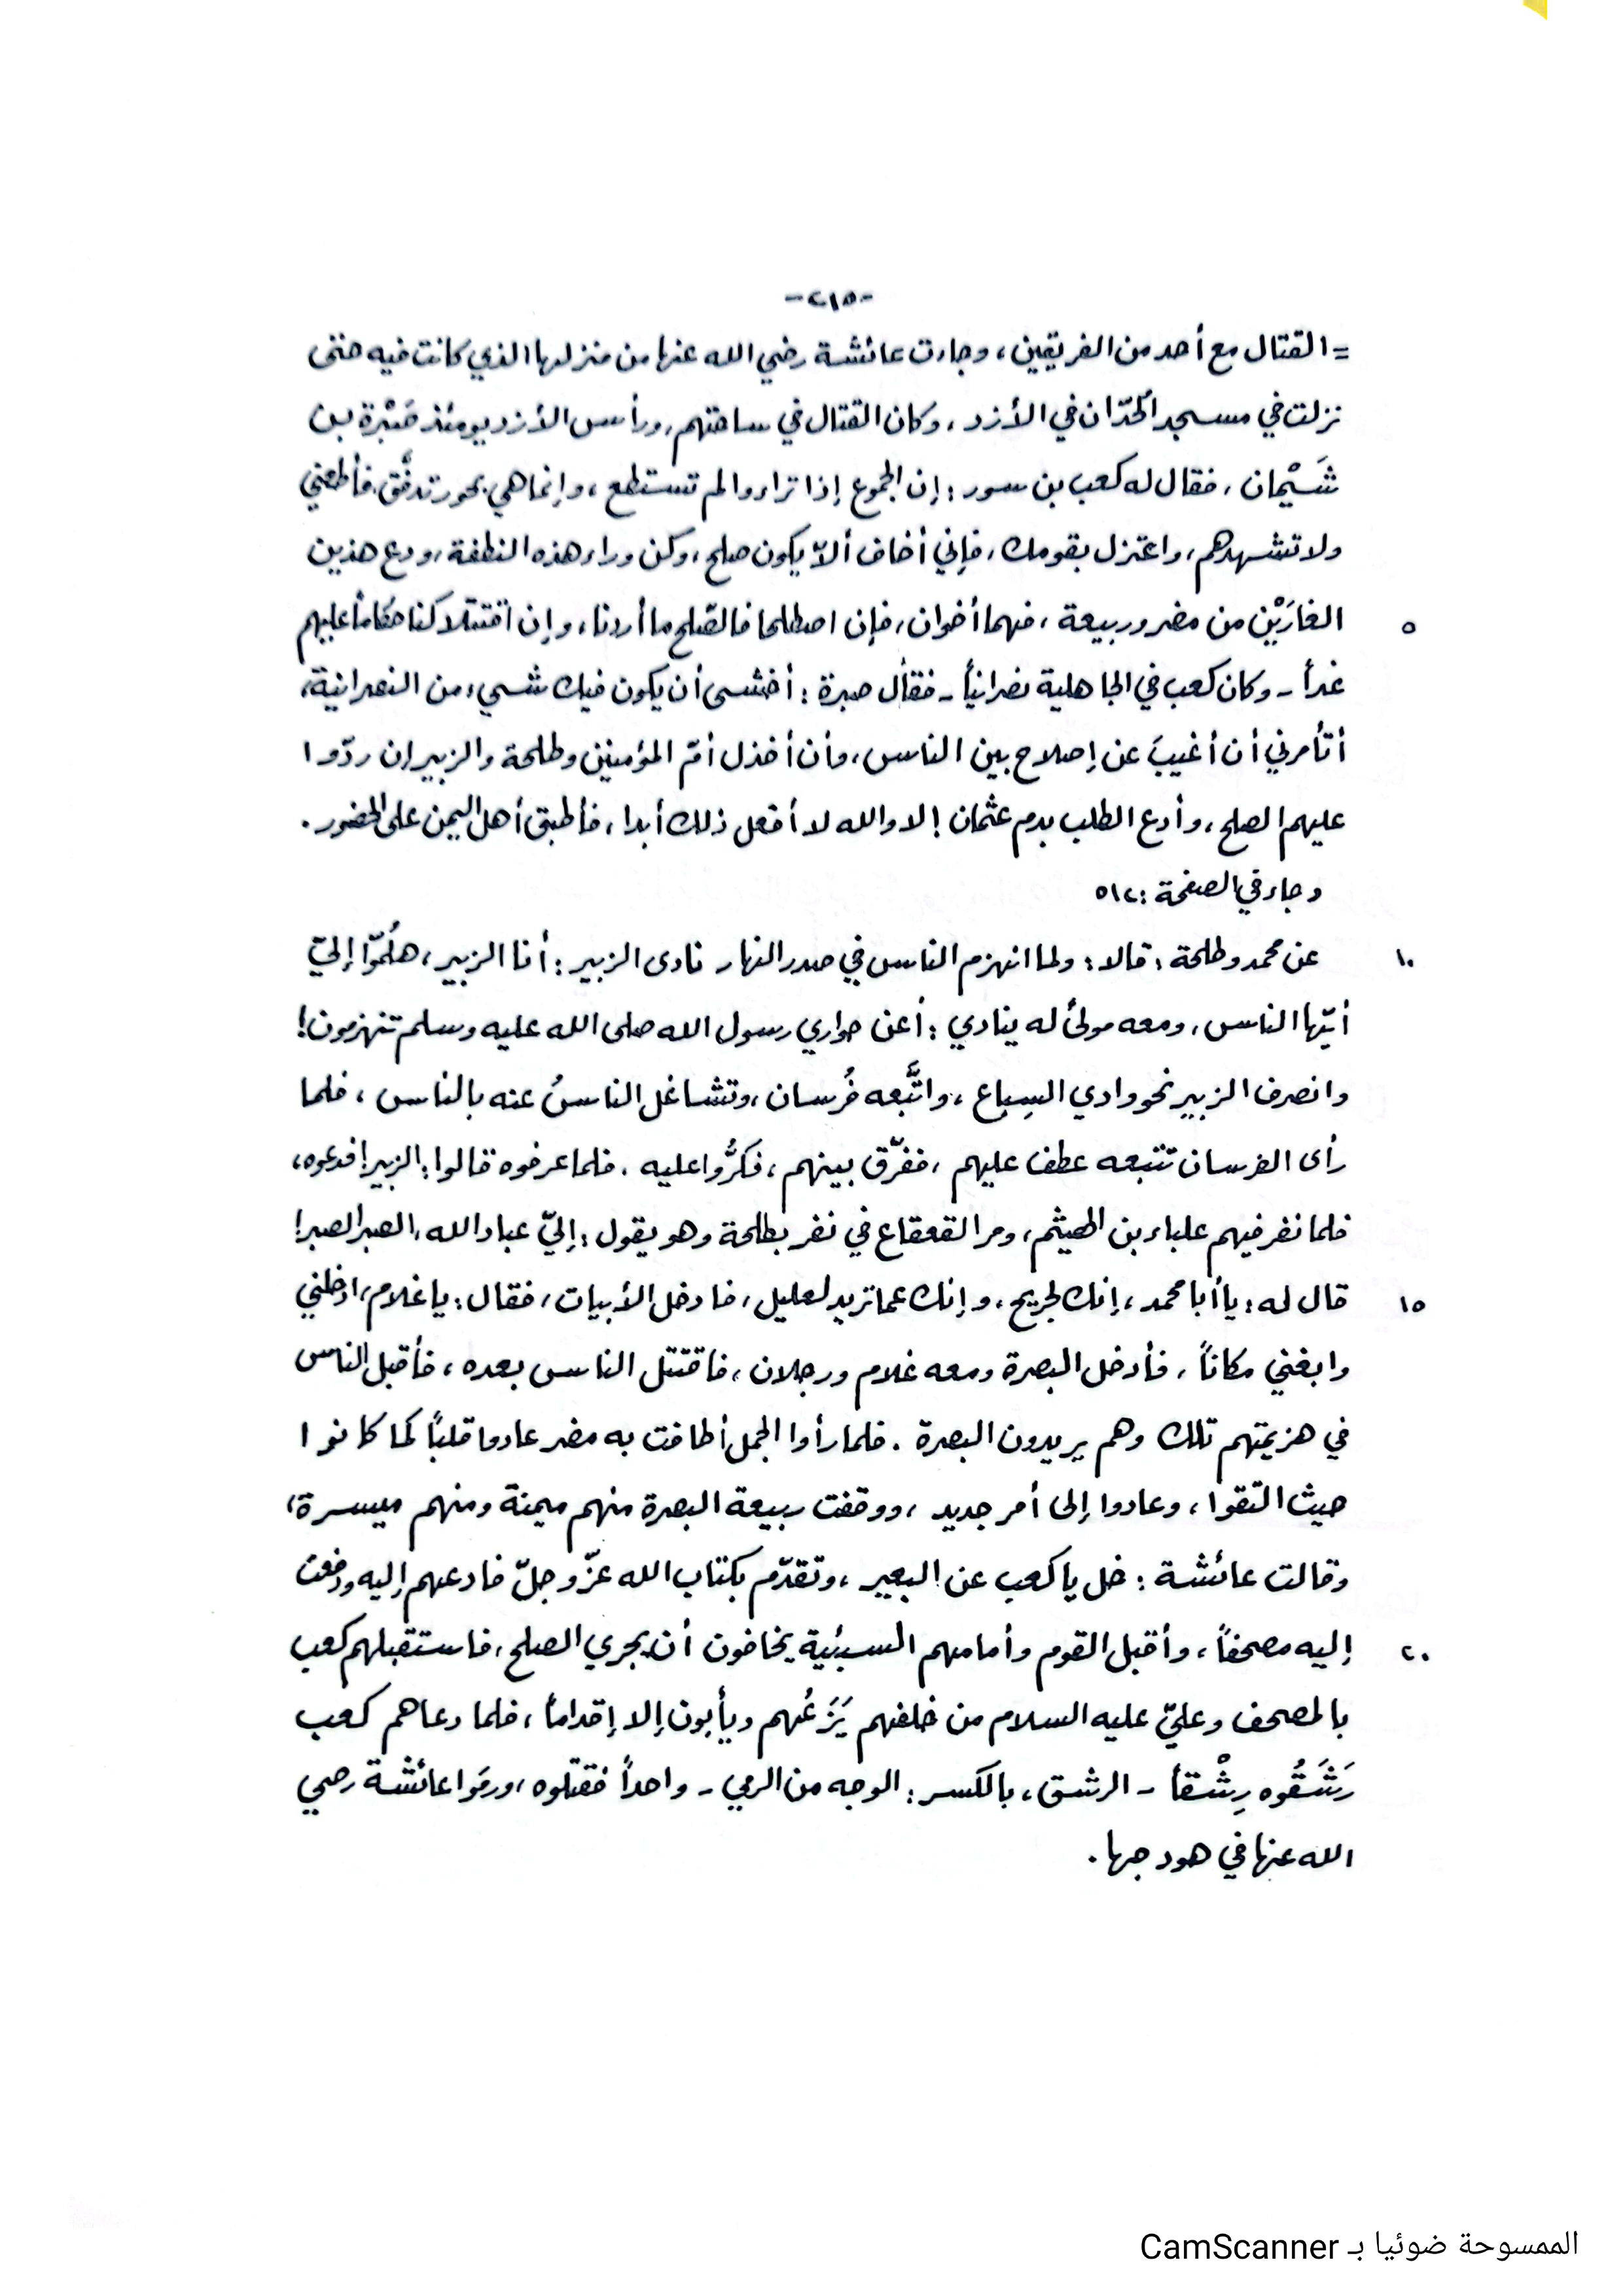 -٢١٥-
= القتال مع أحد من الفريقين، وجاءت عائشة رضي الله عنها من منزلها الذي كانت فيه حتى
نزلت في مسجد الحُدّان في الأزد، وكان القتال في ساحتهم، ورأس الأزد يومئذ صَبْرة بن
شَيْمان، فقال له كعب بن سور: إن الجموع إذا تراءوا لم تستطع، وإنما هي بحور تدفَّق، فأطعني
ولا تشهدهم، واعتزل بقومك، فإني أخاف ألاّ يكون صلح، وكن وراء هذه النطفة، ودع هذين
٥ الغارَيْن من مضر وربيعة، فهما أخوان، فإن اصطلحا فالصّلح ما أردنا، وإن اقتتلا كنا حكاماً عليهم
غداً - وكان كعب في الجاهلية نصرانياً - فقال صبرة: أخشى أن يكون فيك شيء من النصرانية،
أتأمرني أن أغيبَ عن إصلاح بين الناس، وأن أخذل أمّ المؤمنين وطلحة والزبير إن ردّوا
عليهم الصلح، وأدع الطلب بدم عثمان! لا والله لا أفعل ذلك أبدا، فأطبق أهل اليمن على الحضور.
وجاء في الصفحة: ٥١٢
١٠ عن محمد وطلحة، قالا: ولما انهزم الناس في صدر النهار نادى الزبير: أنا الزبير، هلُمّوا إليّ
أيّها الناس، ومعه مولىً له ينادي: أعن حواري رسول الله صلى الله عليه وسلم تنهزمون!
وانصرف الزبير نحو وادي السِباع، واتَّبعه فُرسان، وتشاغل الناسُ عنه بالناس، فلما
رأى الفرسان تتبعه عطف عليهم، ففرّق بينهم، فكرُّوا عليه. فلما عرفوه قالوا: الزبير! فدعوه،
فلما نفر فيهم علباء بن الهيثم، ومر القعقاع في نفر بطلحة وهو يقول: إليّ عباد الله، الصبر الصبر!
١٥ قال له: يا أبا محمد، إنك لجريح، وإنك عما تريد لعليل، فادخل الأبيات، فقال: يا غلام، ادخلني
وابغني مكاناً، فأدخل البصرة ومعه غلام ورجلان، فاقتتل الناس بعده، فأقبل الناس
في هزيمتهم تلك وهم يريدون البصرة. فلما رأوا الجمل أطافت به مضر عادوا قلباً كما كانوا
حيث التقوا، وعادوا إلى أمر جديد، ووقفت ربيعة البصرة منهم ميمنة ومنهم ميسرة،
وقالت عائشة: خل يا كعب عن البعير، وتقدّم بكتاب الله عزّ وجلّ فادعهم إليه ودفعت
٢٠ إليه مصحفاً، وأقبل القوم وأمامهم السبئية يخافون أن يجري الصلح، فاستقبلهم كعب
بالمصحف وعليّ عليه السلام من خلفهم يَزَعُهم ويأبون إلا إقداماً، فلما دعاهم كعب
رَشَقُوه رِشْقاً - الرشق، بالكسر: الوجه من الرمي - واحداً فقتلوه، ورمَوا عائشة رضي
الله عنها في هودجها.
الممسوحة ضوئيا بـ CamScanner